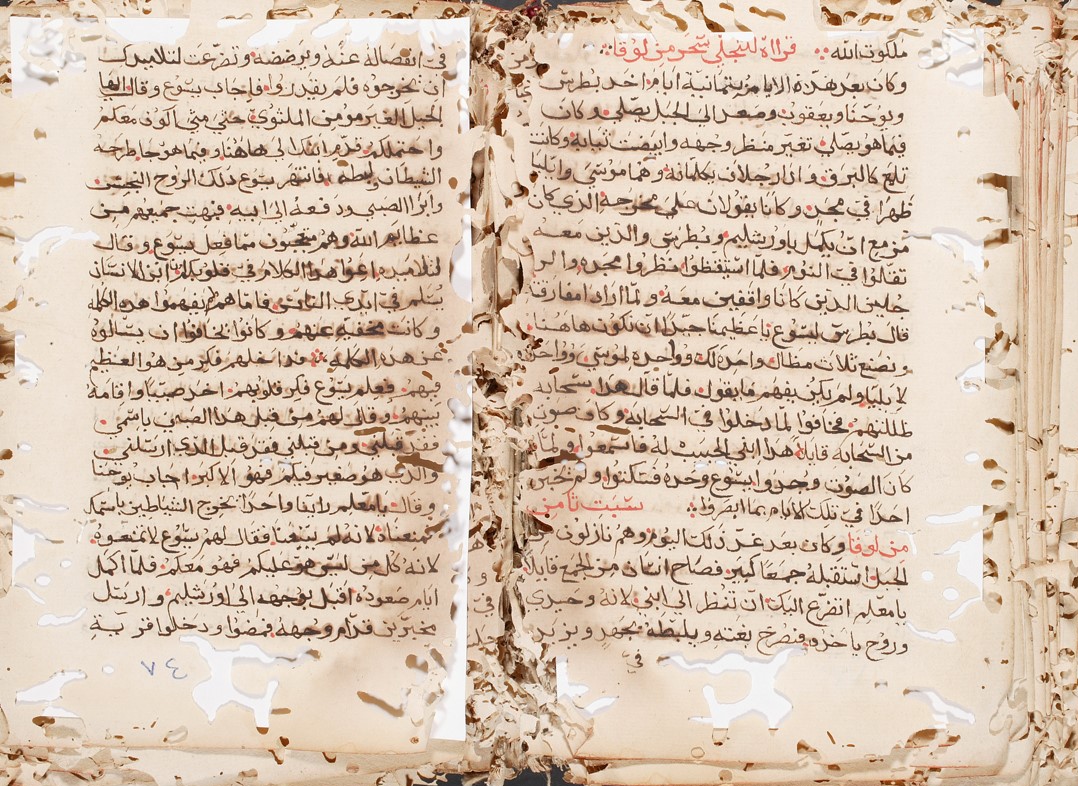 ملكوت الله ؞ قراة لتجلي سحر من لوقا ؞
وكان بعد هذه الايام بثمانية ايام اخد بطرس
ويوحنا ويعقوب وصعد الى الجبل يصلي وكان
فيما هو يصلي تغير منظر وجهه وابيضت ثيابه وكانت
تلمع كالبرق وادا رجلان يكلمانه وهما موسى وايليا
ظهرا في مجد وكانا يقولان على مخرجه الدي كان
مزمع ان يكمل باورشليم وبطرس والذين معه
تقلوا في النوم فلما استيقظوا نظروا مجده والر
جلين الدين كانا واقفين معه ولما اراد امفارقة
قال بطرس ليسوع يا عظيمنا جيدا ان نكون هاهنا
ونصنع تلات مظال واحده لك وواحده لموسى وواحده
لايليا ولم يكن يفهم ما يقول فلما قال هدا سحابه
ظللتهم فخافوا لما دخلوا في السحابه وكان صوت
من السحابه قايلا هدا ابني الحبيب له فاسمعوا ولما
كان الصوت وجدوا يسوع وحده فسكتوا ولم يخبروا
احدا في تلك الايام بما ابصروا ؞ سبت تامن
من لوقا وكان بعد غد ذلك اليوم وهم نازلون من
الجبل استقبله جمعا كبير فصاح انسان من الجمع قايلا
يا معلم اتضرع اليك ان تنظر الى ابني لانه وحيدي
وروح ياخده فيصرخ بغته ويلبطه بجهد ويزبد
في
في انفصاله عنه ويرضضه وتضرعت لتلاميدك
ان يخرجوه فلم يقدروا فاجاب يسوع وقال ايها
الجيل الغير مومن الملتوي حتى متى اكون معكم
واحتملكم قدم ابنك الى هاهنا وفيما هو جا طرحه
الشيطان ولبطه فانتهر يسوع ذلك الروح النجس
وابرا الصبي ودفعه الى ابيه فبهت جميعهم من
عظايم الله وهم متعجبون مما فعل يسوع وقال
لتلاميده اعوا هدا الكلام في قلوبكم ان ابن الانسان
يسلم في ايدي الناس فاما هم لم يفهموا هده الكلمه
وكانت مخفيه عنهم وكانوا يخافوا ان يسالوه
عن هده الكلمه ؞ فداخلهم فكر من هو العظيم
فيهم فعلم يسوع فكر قلوبهم اخد صبيا واقامه
بينهم وقال لهم من قبل هدا الصبي باسمي
فقد قبلني ومن قبلني فقد قبل الدي ارسلني
والدي هو صغير فيكم فهو الاكبر اجاب يوحنا
وقال يا معلم راينا واحدا يخرج الشياطين باسمك
فمنعناه لانه لم يتبعنا فقال لهم يسوع لا تمنعوه
لانه كل من ليس هو عليكم فهو معكم فلما اكمل
ايام صعوده اقبل بوجهه الى اورشليم وارسل
مخبرين قدام وجهه فمضوا ودخلوا قرية
٧٤